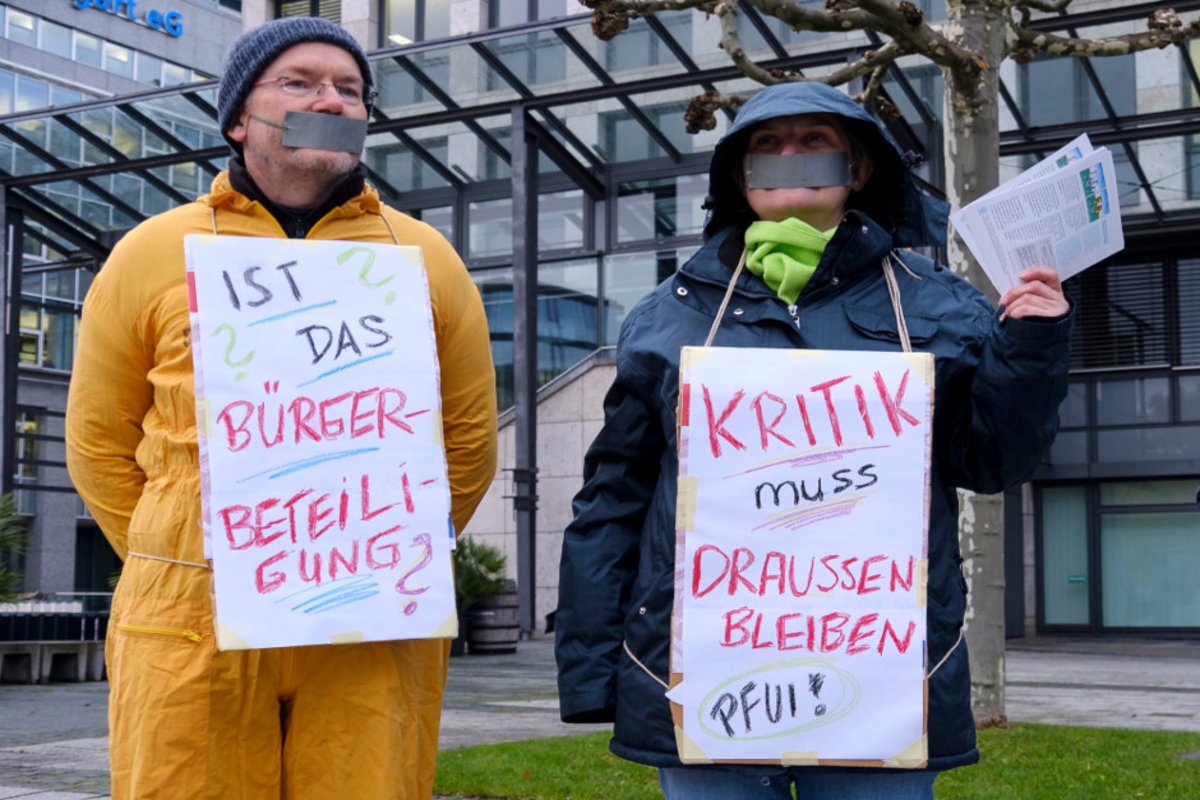 eG
IST ?
? DAS
BÜRGER-
BETEILI-
GUNG?
KRITIK
MUSS
DRAUSSEN
BLEIBEN
PFUI!